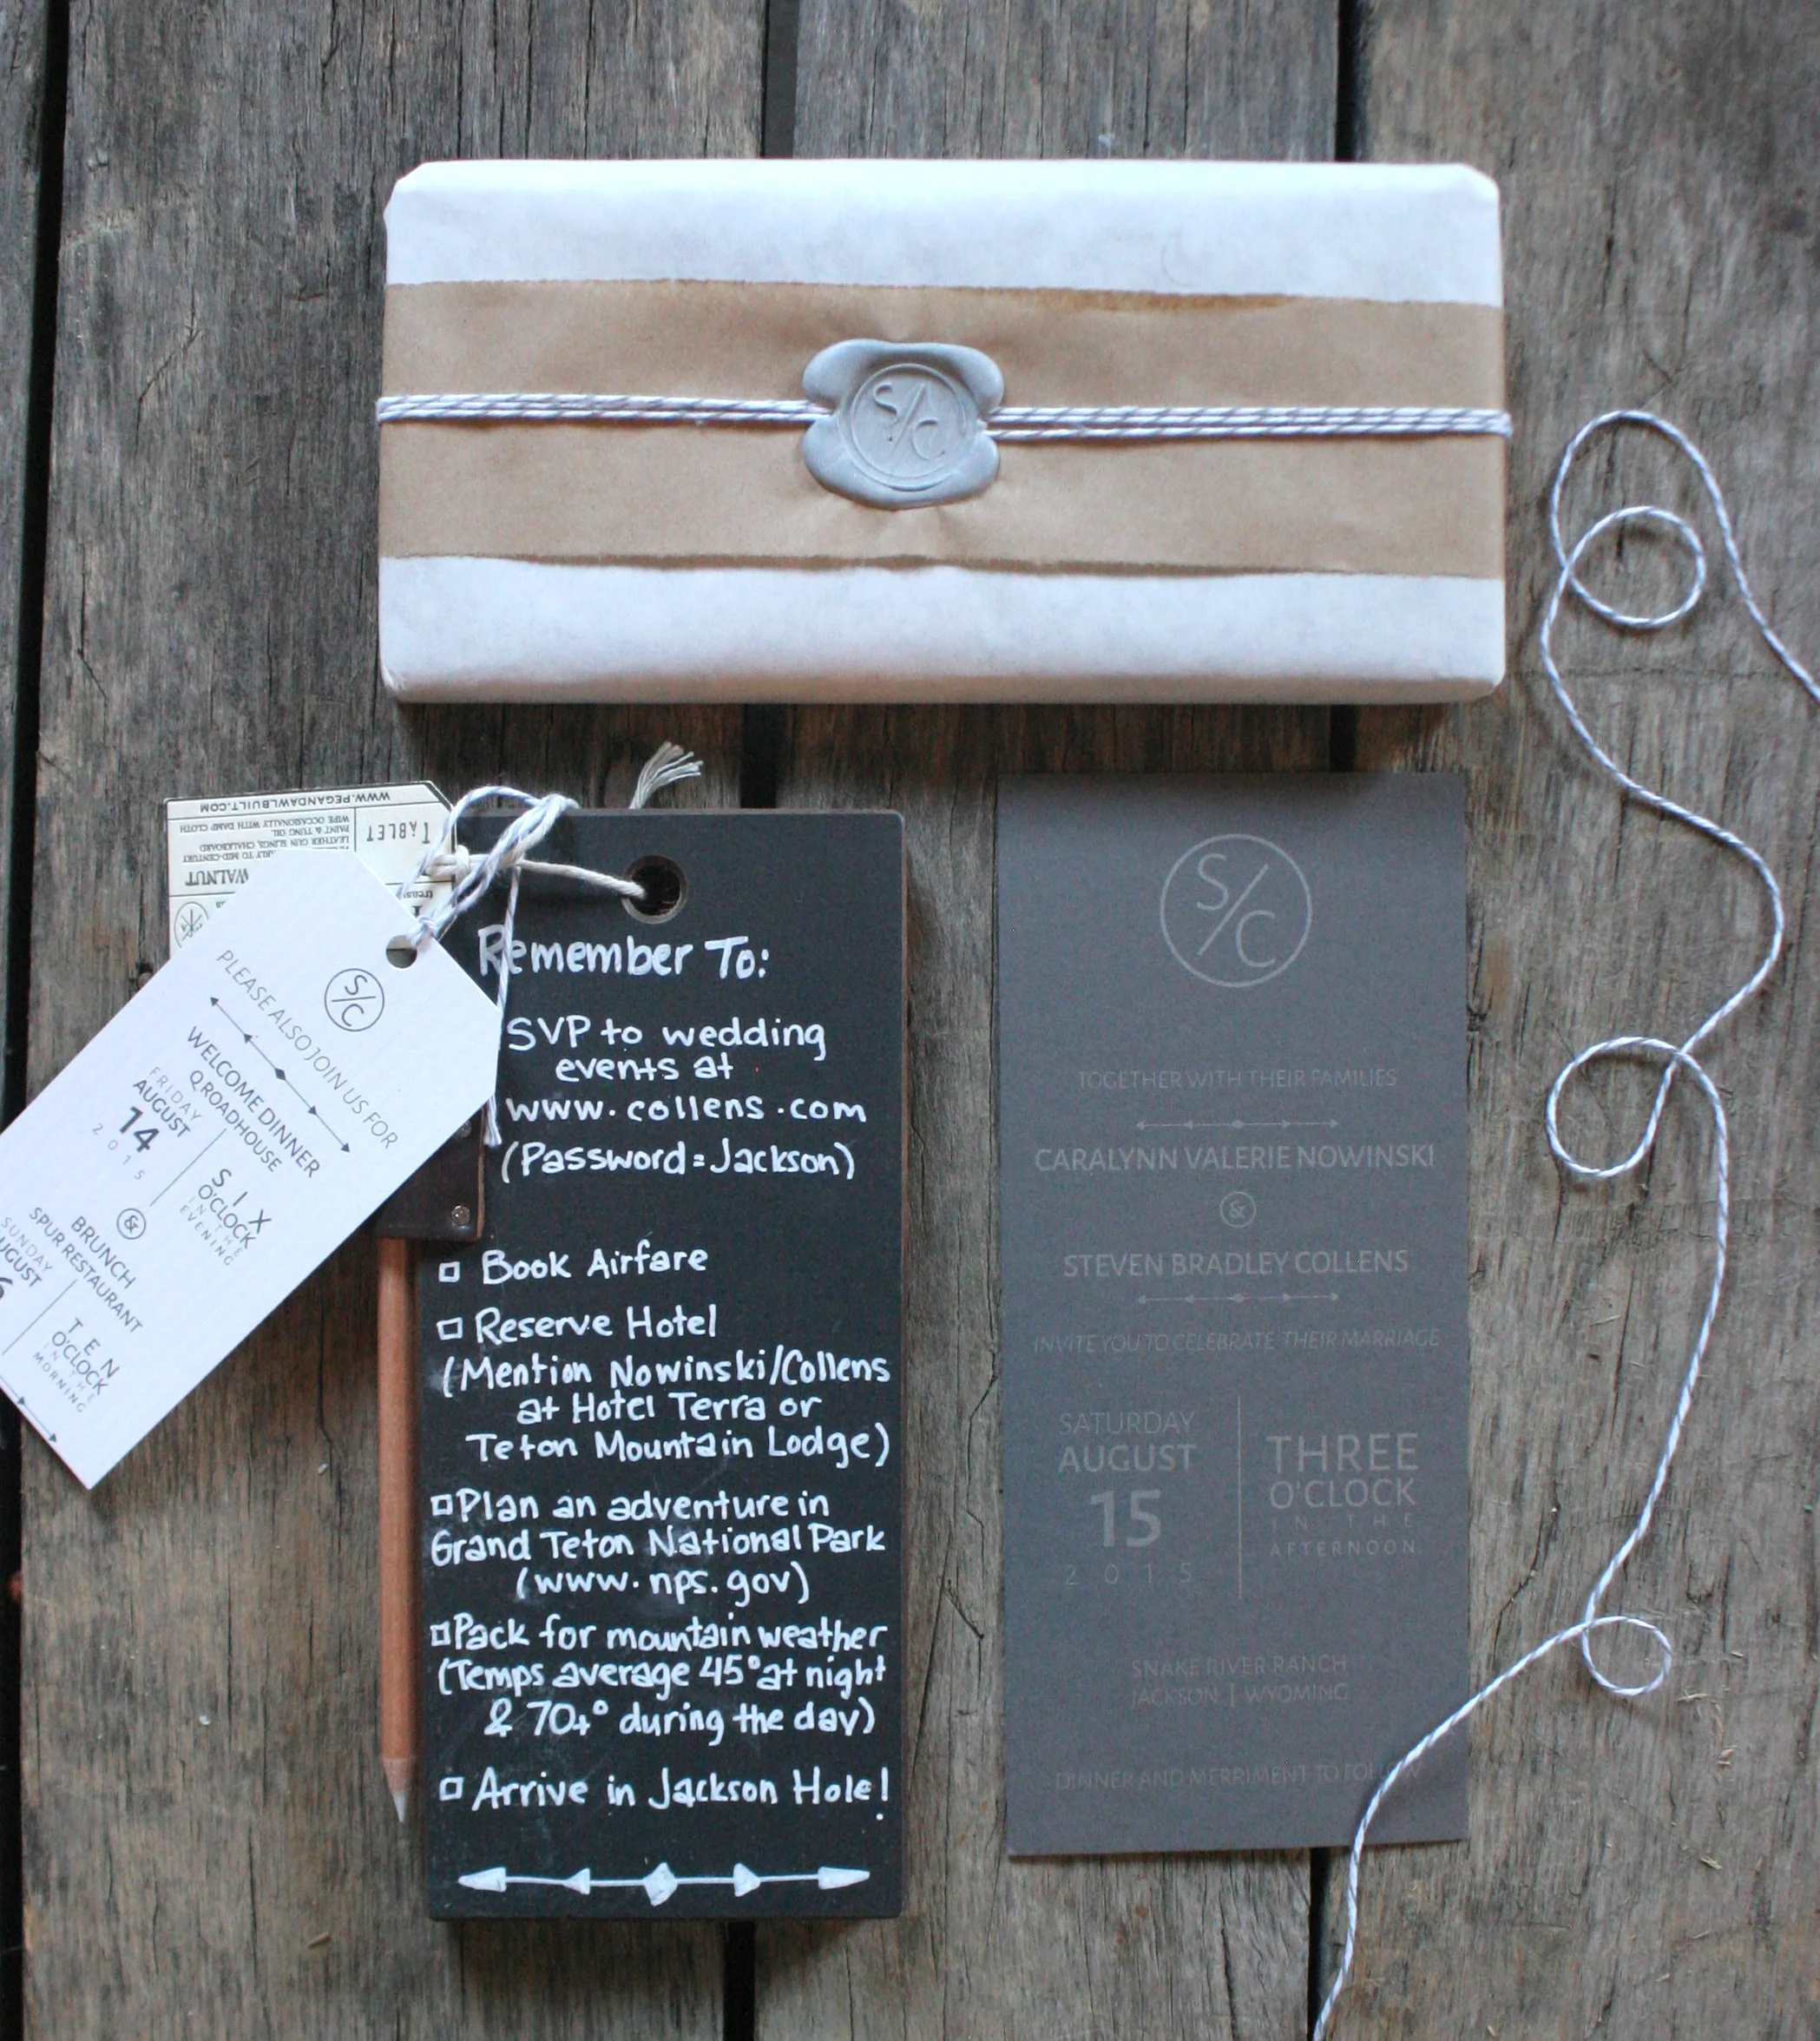 S/C
WWW.PEGANDAWLBUILT.COM
TABLET
WIPE OCCASIONALLY WITH DAMP CLOTH
PAINT & TUNG OIL
LEATHER GUN SLINGS, CHALKBOARD
EARLY TO MID-CENTURY
WALNUT
S/C
PLEASE ALSO JOIN US FOR
WELCOME DINNER
Q ROADHOUSE
FRIDAY
AUGUST
14
2015
SIX
O'CLOCK
IN THE
EVENING
&
BRUNCH
SPUR RESTAURANT
SUNDAY
UGUST
6
TEN
O'CLOCK
IN THE
MORNING
Remember To:
SVP to wedding
events at
www.collens.com
(Password=Jackson)
Book Airfare
Reserve Hotel
(Mention Nowinski/Collens
at Hotel Terra or
Teton Mountain Lodge)
Plan an adventure in
Grand Teton National Park
(www.nps.gov)
Pack for mountain weather
(Temps average 45° at night
& 70+° during the day)
Arrive in Jackson Hole!
S/C
TOGETHER WITH THEIR FAMILIES
CARALYNN VALERIE NOWINSKI
&
STEVEN BRADLEY COLLENS
INVITE YOU TO CELEBRATE THEIR MARRIAGE
SATURDAY
AUGUST
15
2015
THREE
O'CLOCK
IN THE
AFTERNOON
SNAKE RIVER RANCH
JACKSON | WYOMING
DINNER AND MERRIMENT TO FOLLOW